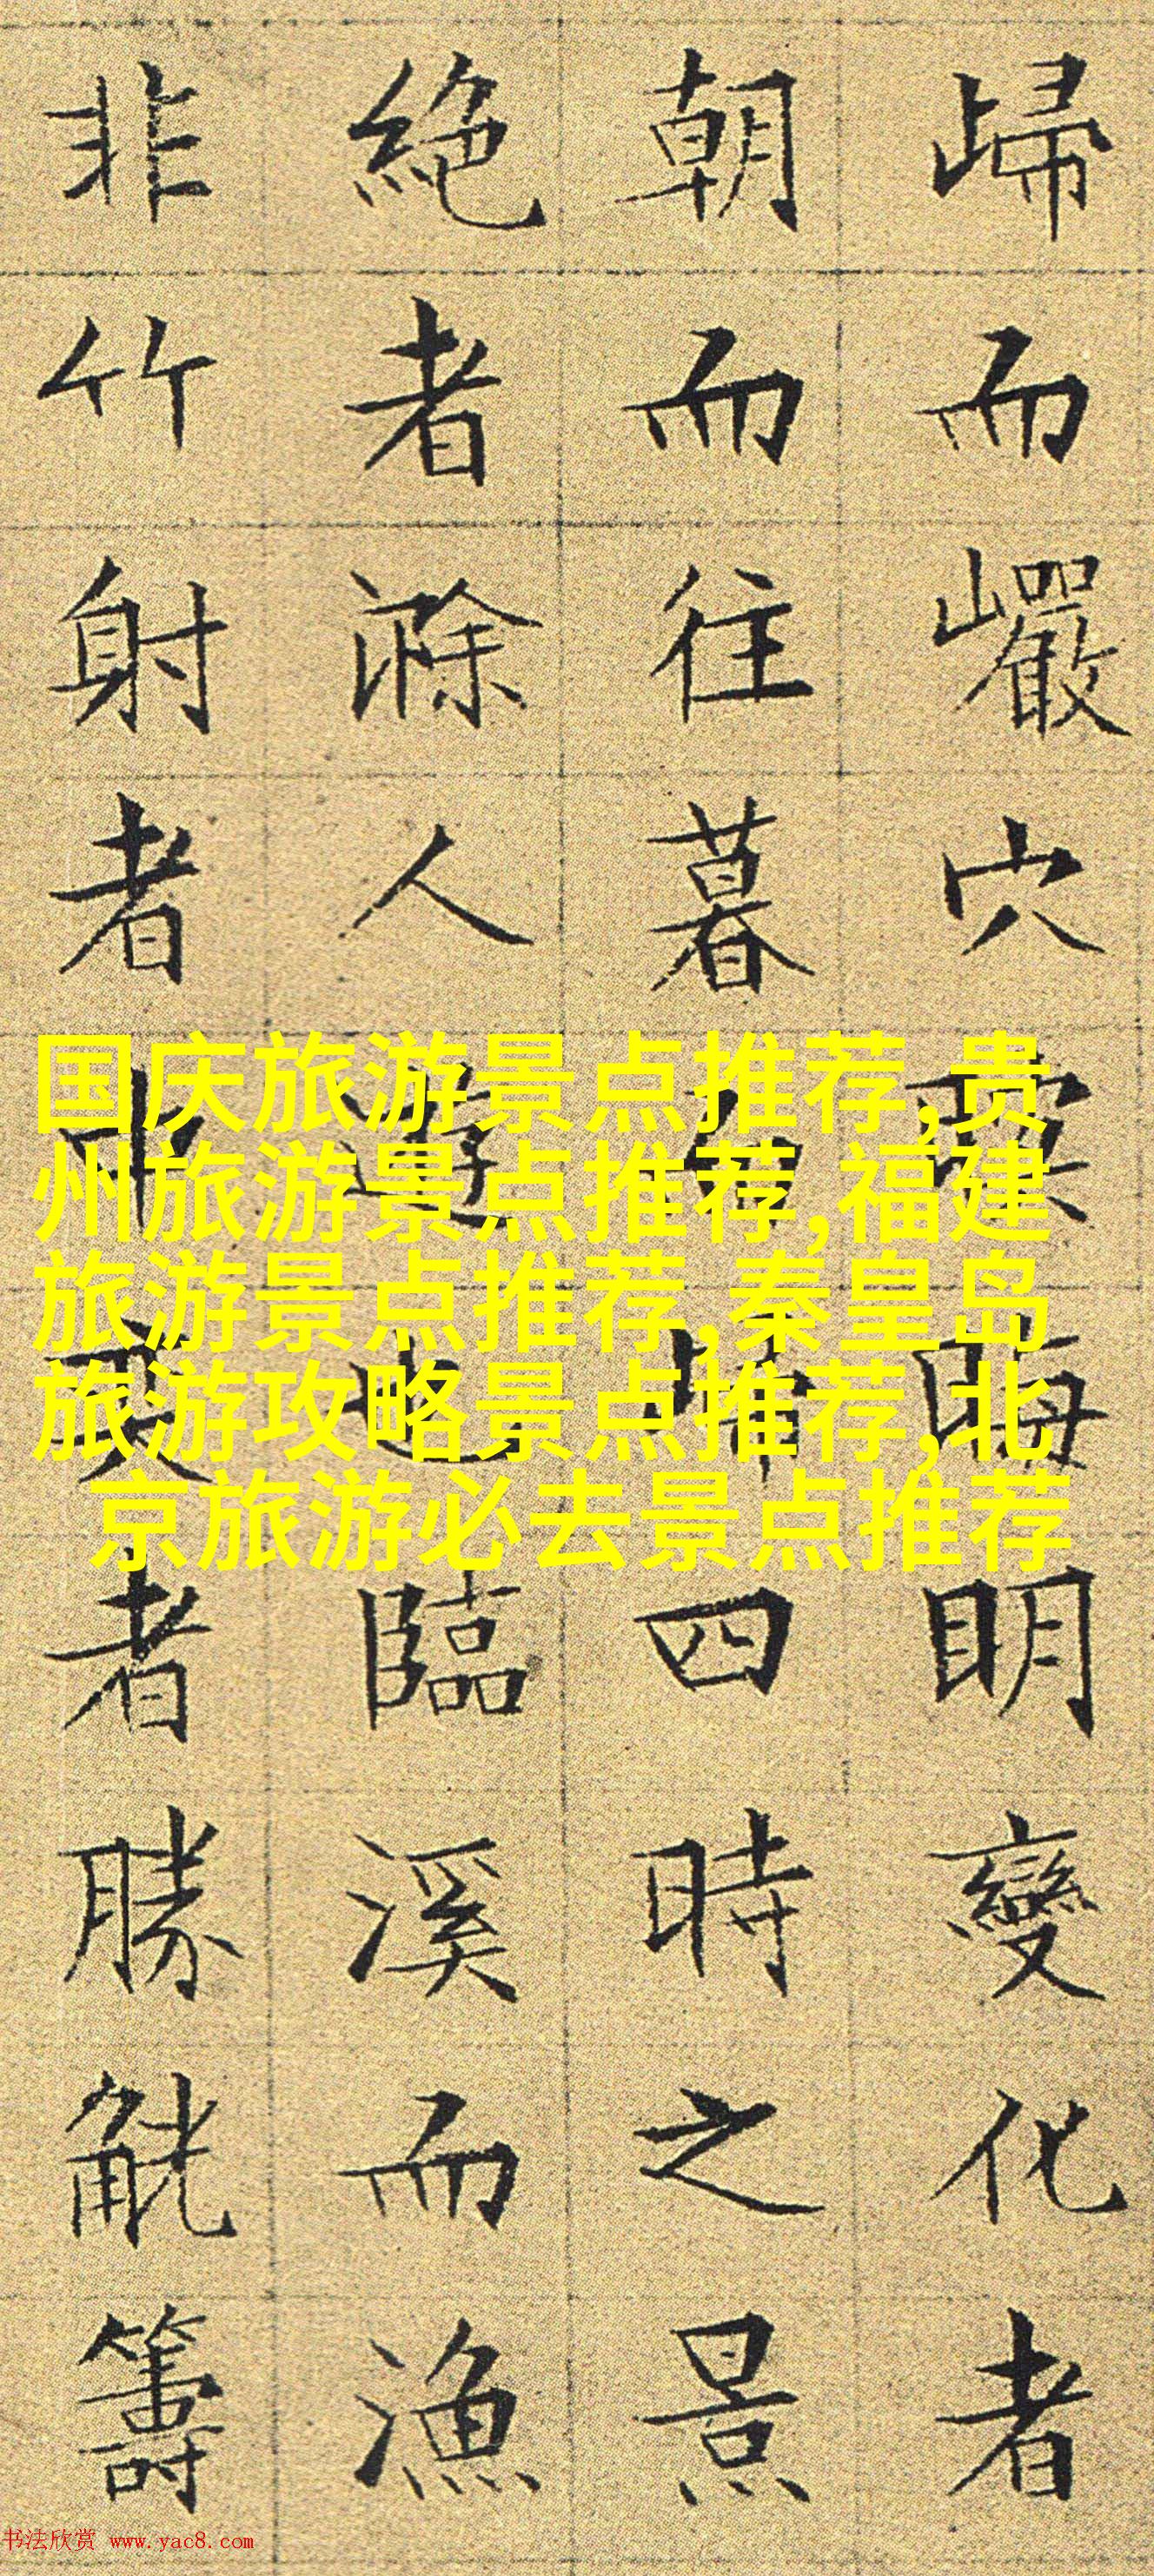 歸而巗穴暝晦明變化者
朝而往暮四時之景
絕者滁人遊也臨溪而漁
非竹射者中奕者勝觥籌
国庆旅游景点推荐,贵
州旅游景点推荐,福建
旅游景点推荐,秦皇岛
旅游攻略景点推荐,北
京旅游必去景点推荐
书法欣赏 www.yac8.com